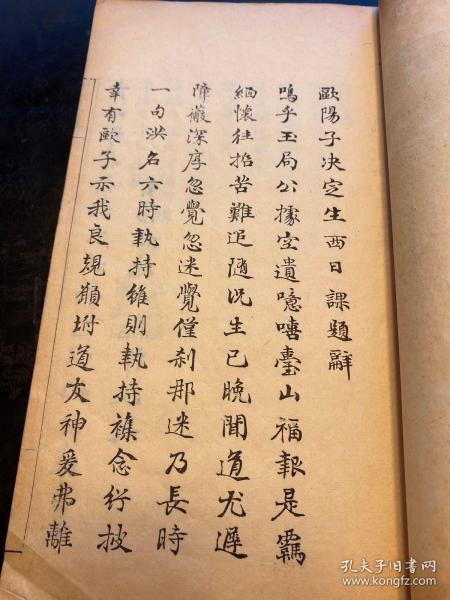 歐陽子決定生西日課題辭
嗚乎玉局公據空遺噫嘻臺山福報是羈
緬懷往喆苦難追隨況生已晚聞道尤遲
障嶶深厚忽覺忽迷覺僅刹那迷乃長時
一句洪名六時執持雖則執持襍念紛披
幸有歐子示我良規願坿道友神爰弗離
孔夫子旧书网
www.kongfz.com